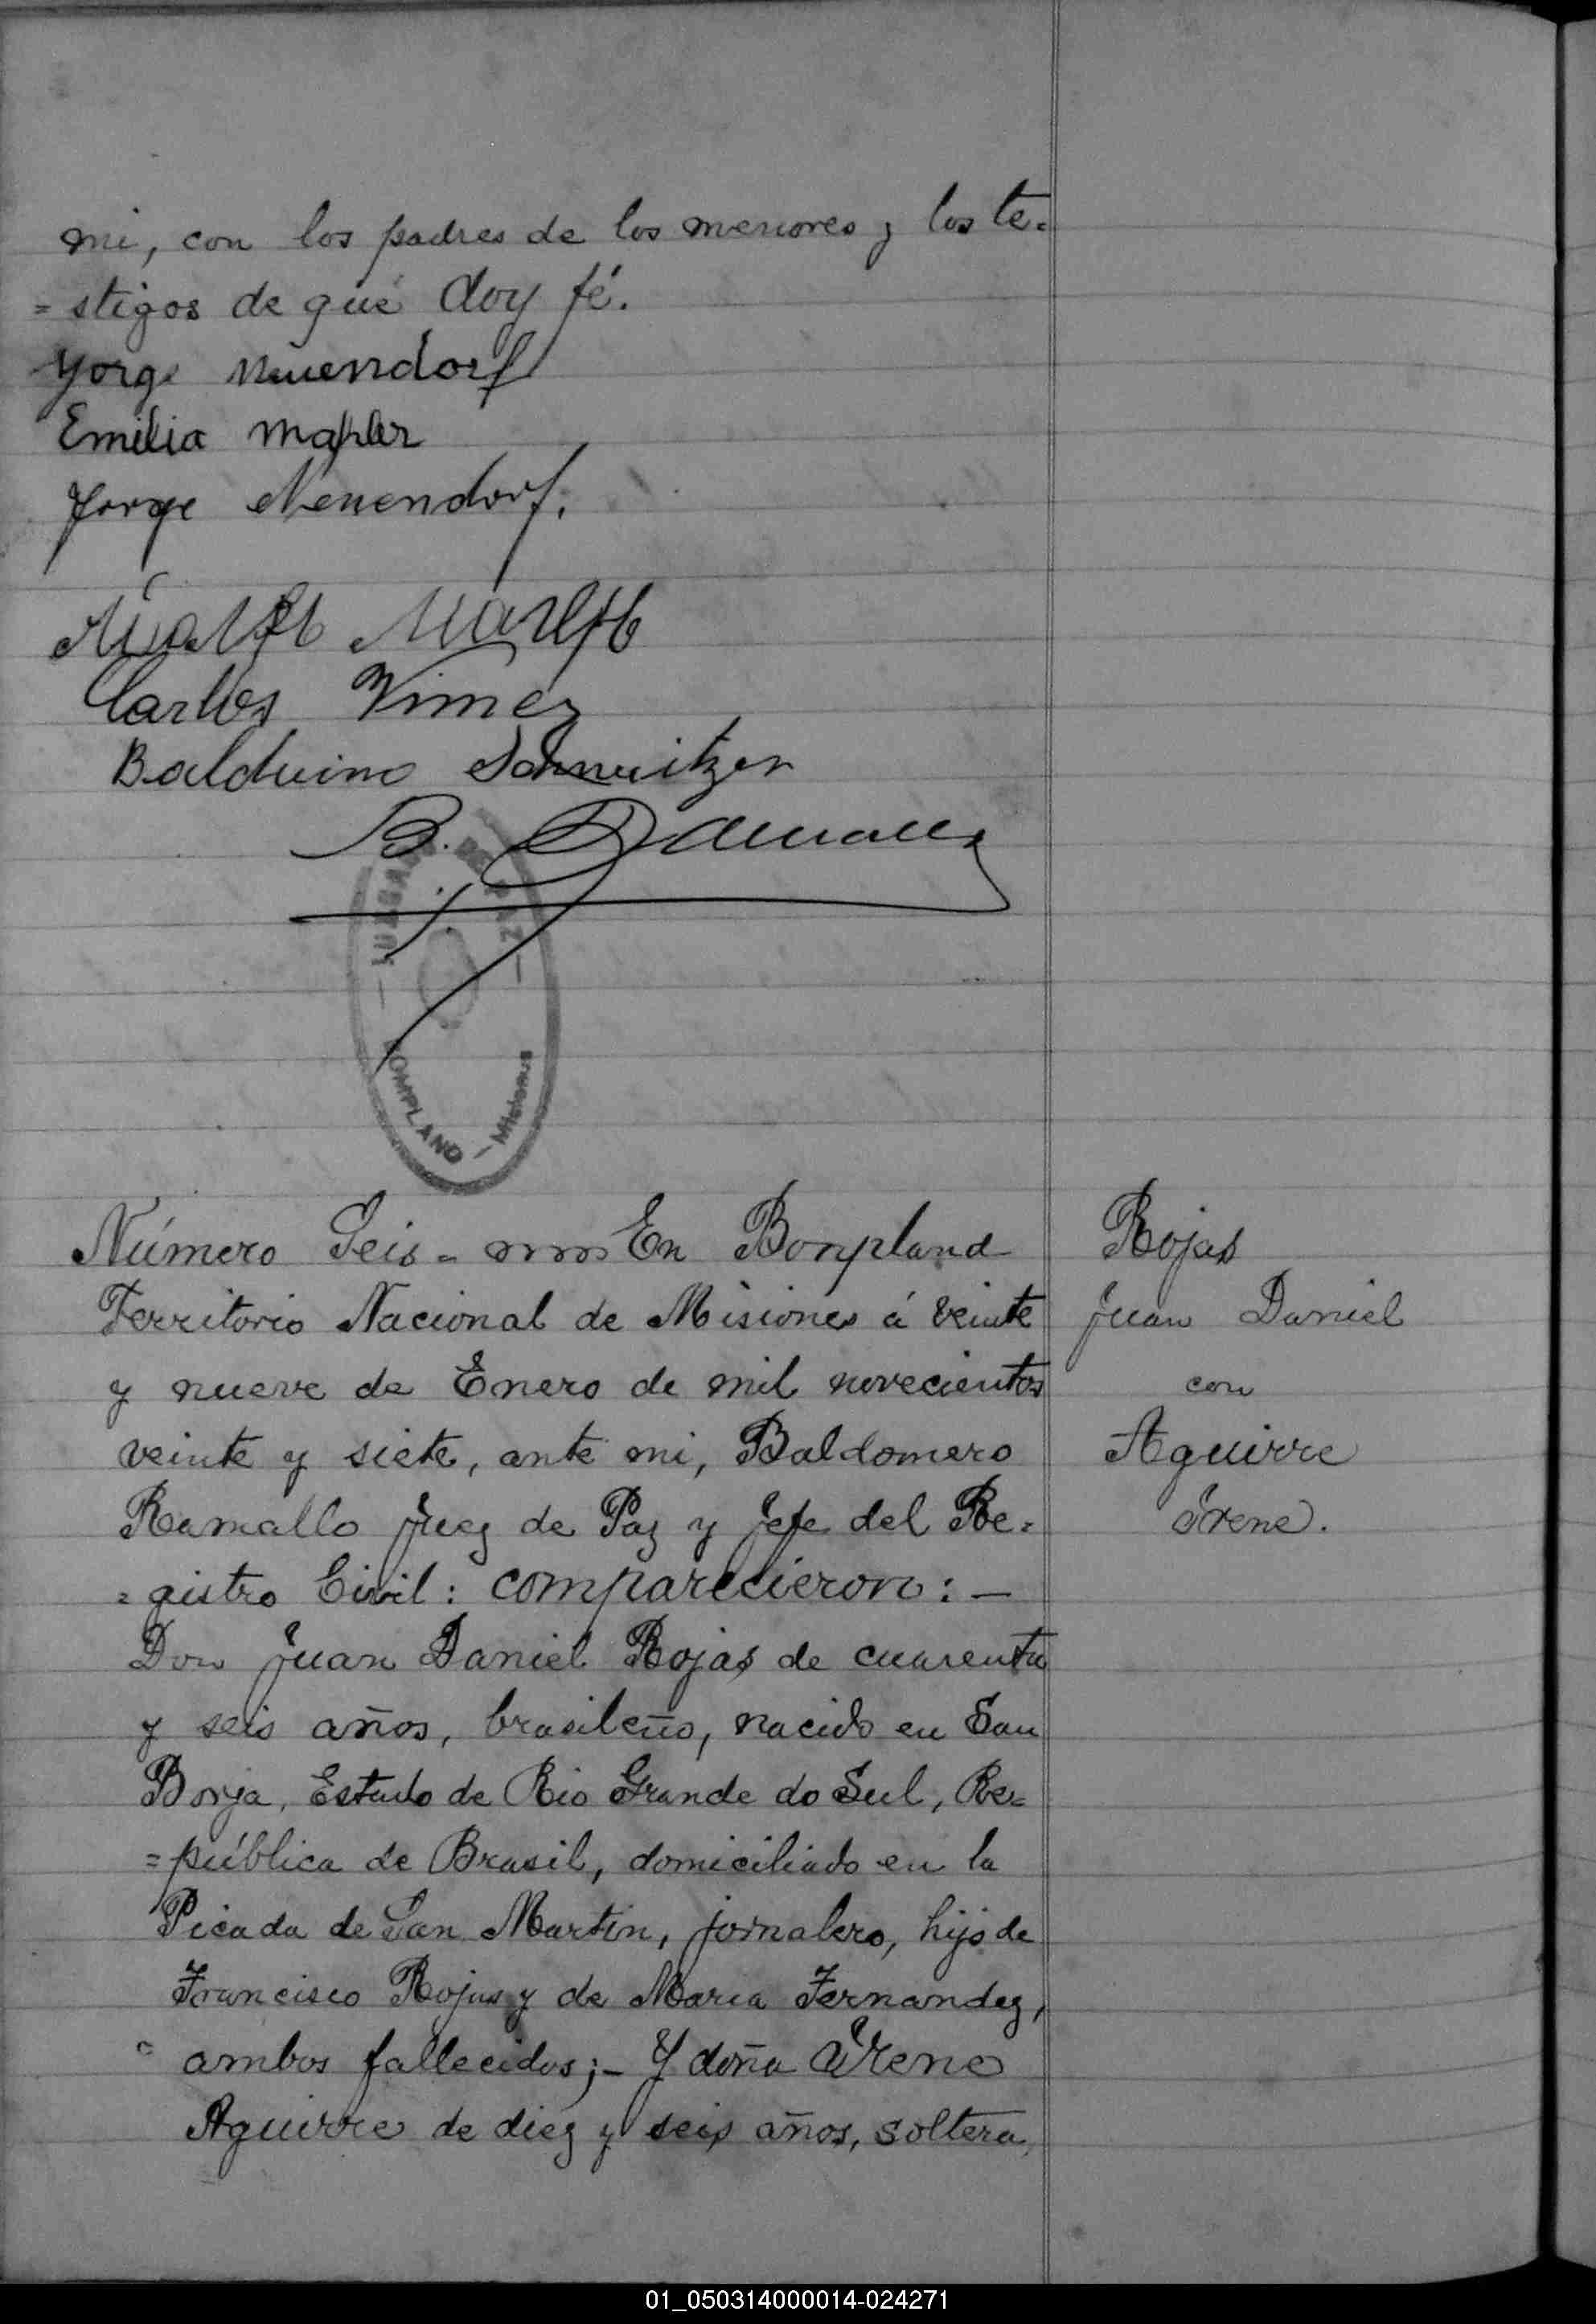 mi, con los padres de los menores y los te=
=stigos de que doy fé.
Yorge Neuendorf
Emilia Mahler
Jorge Neuendorf.
Carlos Vimez
Balduino Schweitzer
B. Ramallo
JUZGADO DE PAZ
BOMPLAND - Misiones
Número Seis = En Bonpland
Territorio Nacional de Misiones á veinte
y nueve de Enero de mil novecientos
veinte y siete, ante mi, Baldomero
Ramallo Juez de Paz y Jefe del Re=
=gistro Civil: comparecieron: —
Don Juan Daniel Rojas de cuarenta
y seis años, brasileño, nacido en San
Borja, Estado de Rio Grande do Sul, Re=
=pública de Brasil, domiciliado en la
Picada de San Martin, jornalero, hijo de
Francisco Rojas y de Maria Fernandez,
ambos fallecidos; - Y doña Irene
Aguirre de diez y seis años, soltera,
Rojas
Juan Daniel
con
Aguirre
Irene.
01_050314000014-024271